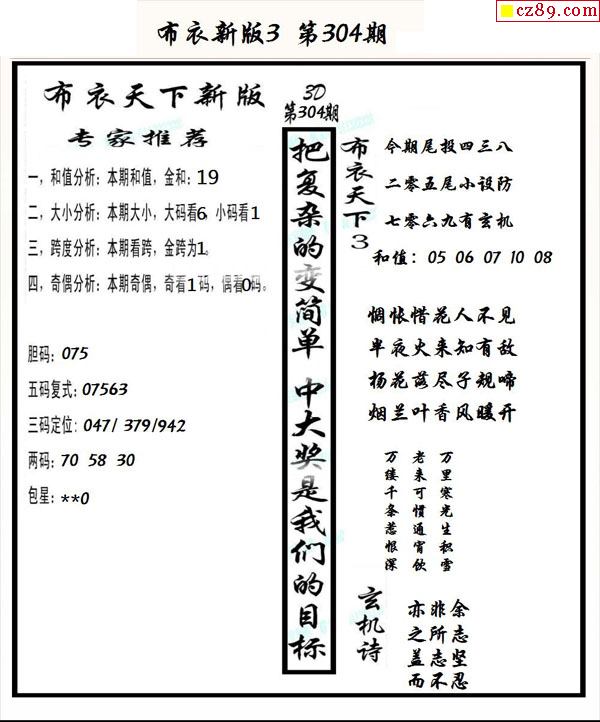 cz89.com
布衣新版3 第304期
布衣天下新版
专家推荐
一，和值分析：本期和值，金和：19
二，大小分析：本期大小，大码看6，小码看1
三，跨度分析：本期看跨，金跨为1。
四，奇偶分析：本期奇偶，奇看1码，偶看0码。
胆码：075
五码复式：07563
三码定位：047/ 379/942
两码：70 58 30
包星：**0
3D
第304期
把复杂的变简单 中大奖是我们的目标
布衣天下3
今期尾投四三八
二零五尾小设防
七零六九有玄机
和值：05 06 07 10 08
惆怅惜花人不见
半夜火来知有敌
杨花落尽子规啼
烟兰叶香风暖开
万里寒光生积雪
老来可惯通宵饮
万缕千条惹恨深
玄机诗
余志坚忍
非所志不
亦之盖而